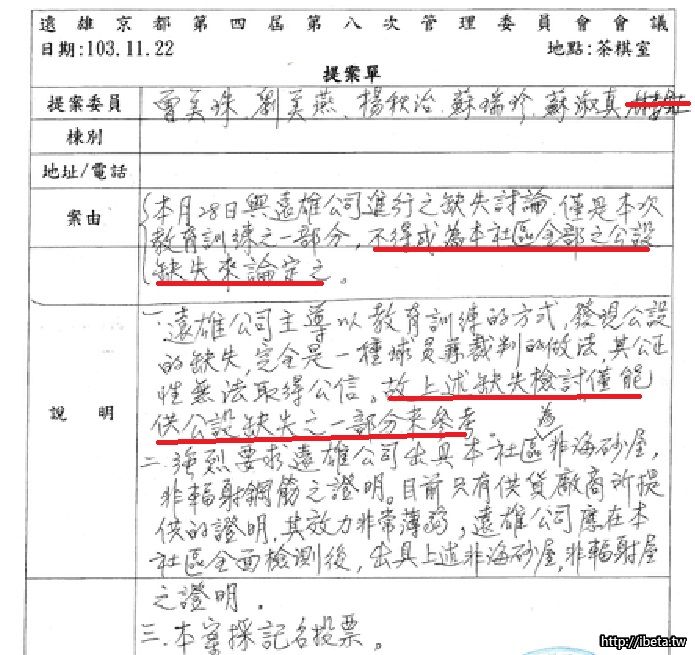 遠雄京都第四屆第八次管理委員會會議
日期:103.11.22 地點:茶棋室
提案單
提案委員 曾美珠、劉美燕、楊秋治、蘇瑞珍、蘇淑真
棟別
地址/電話
案由
本月28日與遠雄公司進行之缺失討論,僅是本次
教育訓練之一部分,不得成為本社區全部之公設
缺失來論定之。
說明
一、遠雄公司主導以教育訓練的方式,發現公設
的缺失,完全是一種球員兼裁判的做法,其公正
性無法取得公信。故上述缺失檢討僅能
供公設缺失之一部分來參考
二、強烈要求遠雄公司出具本社區為非海砂屋,
非輻射鋼筋之證明。目前只有供貨廠商所提
供的證明,其效力非常薄弱,遠雄公司應在本
社區全面檢測後,出具上述非海砂屋,非輻射屋
之證明。
三、本案採記名投票。
http://ibeta.tw